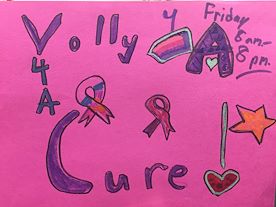 Volly 4 A
Friday
8am.-
8pm.
4
A
Cure!